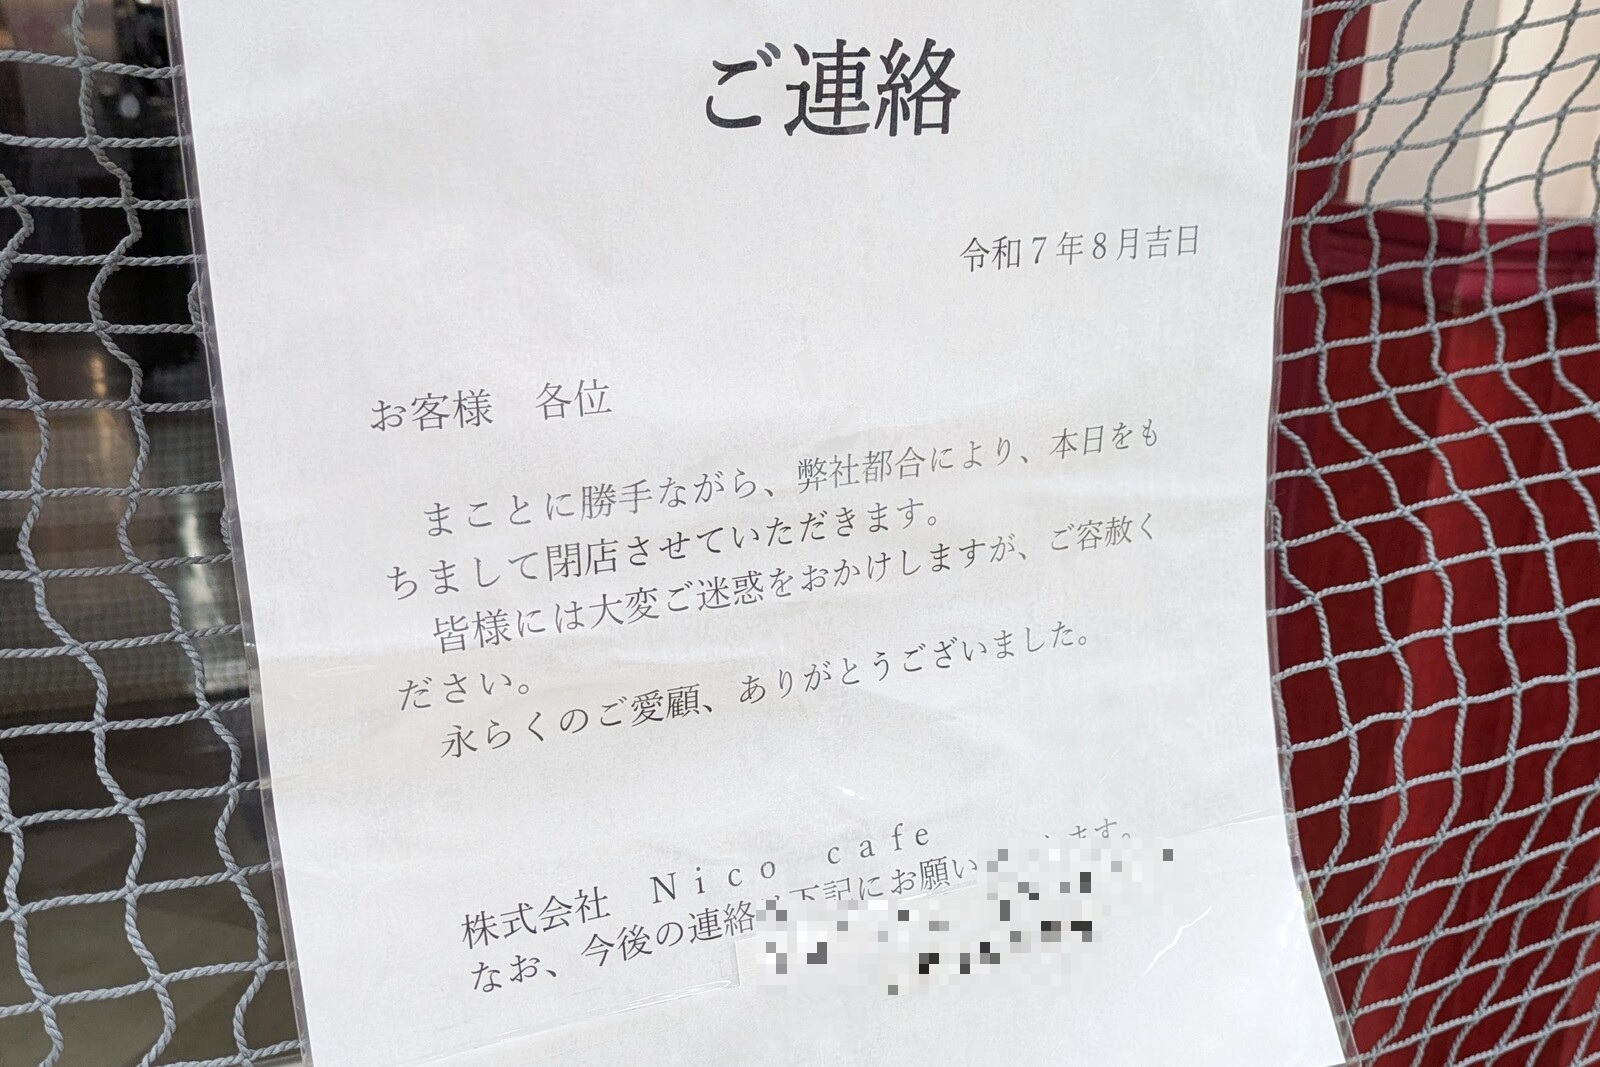 ご連絡
令和７年８月吉日
お客様　各位
まことに勝手ながら、弊社都合により、本日をも
ちまして閉店させていただきます。
皆様には大変ご迷惑をおかけしますが、ご容赦く
ださい。
永らくのご愛顧、ありがとうございました。
株式会社　Ｎｉｃｏ　ｃａｆｅ
なお、今後の連絡は下記にお願い ます。